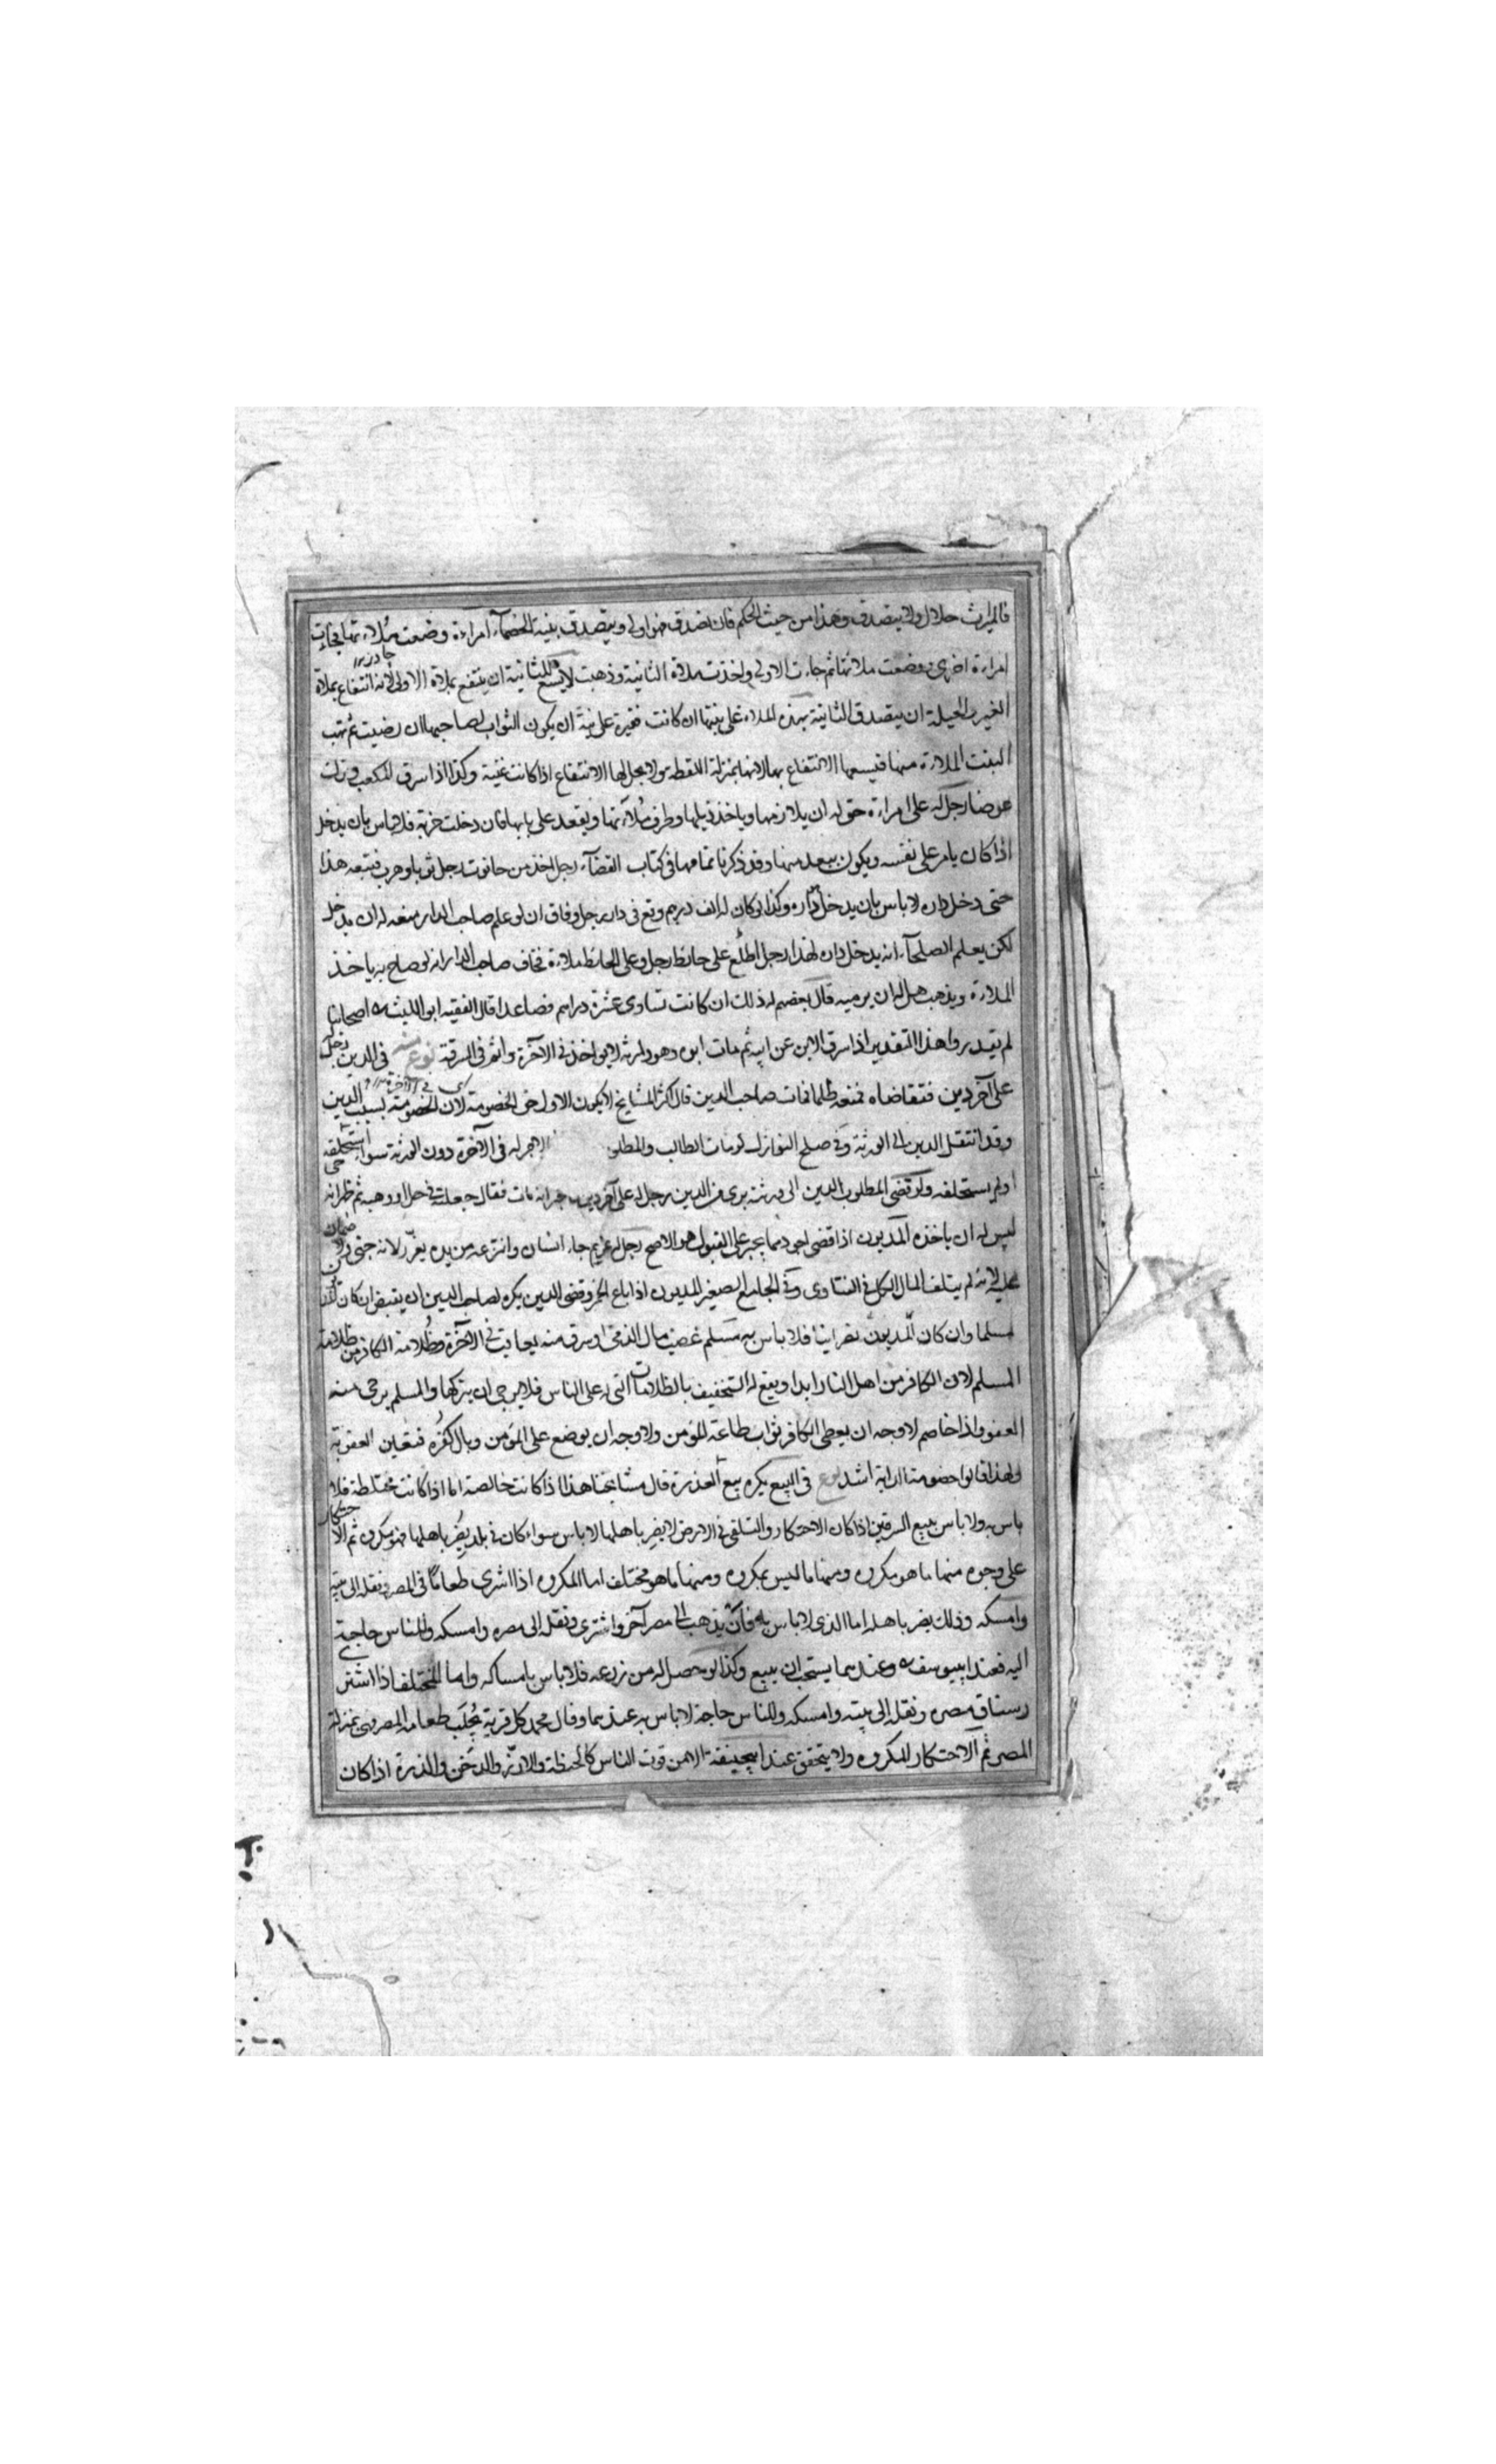 فالميراث حلال ولا يتصدق وهذا من حيث الحكم فان تصدق فهو اولى ويتصدق بنية الخصماء امراءة وضعت ملاءتها فجاءت
امراءة اخرى ووضعت ملائتها ثم جاءت الاولى واخذت ملاءة الثانية وذهبت لا يسع للثانية ان ينتفع بملاءة الاولى لانه انتفاع بملاءة
الغير والحيلة ان يتصدق الثانية بهذه الملاءة على بنتها ان كانت فقيرة على نية ان يكون الثواب لصاحبها ان رضيت ثم تهب
البنت الملاءة منها فيسعها الانتفاع بها لانها بمنزلة اللقطة ولا يحل لها الانتفاع اذا كانت غنية وكذا اذا سرق المكعب وترك
عوضا رجل له على امراءة حق له ان يلازمها وياخذ ذيلها وطرف ملآءتها ويقعد على بابها فان دخلت خربة فلا باس بان يدخل
اذا كان يامن على نفسه ويكون ببعد منها وقد ذكرنا تمامها في كتاب القضآء رجل اخذ من حانوت رجل ثوبا وهرب فتبعه هذا
حتى دخل داره لا باس بان يدخل داره وكذا لو كان له الف درهم وقع في دار رجل وخاف ان لو علم صاحب الدار منعه له ان يدخل
لكن يعلم الصلحآء انه يدخل داره لهذا رجل اطلع على حائط رجل وعلى الحائط ملاءة فخاف صاحب الدار انه لو صاح به ياخذ
الملاءة ويذهب هل له ان يرميه قال بعضهم له ذلك ان كانت تساوى عشرة دراهم فصاعدا قال الفقيه ابو الليث اصحابنا
لم يقدروا هذا التقدير اذا سرق الابن عن ابيه ثم مات ابوه وهو وارثه لا يؤاخذ في الآخرة واثم في السرقة نوع منه في الدين رجل له
على آخر دين فتقاضاه فمنعه ظلما فمات صاحب الدين قال اكثر المشايخ لا يكون الاول حق الخصومة لان الخصومة بسبب الدين
وقد انتقل الدين الى الورثة وفي صلح النوازل لو مات الطالب والمطلوب الاجر له في الآخرة دون الورثة سواء استحلفه
او لم يستحلفه ولو قضى المطلوب الدين الى ورثته برئ من الدين رجل له على آخر دين انه مات فقال جعلته في حل او وهبه ثم ظهر انه حى
ليس له ان ياخذه المديون اذا قضى اجود مما يجبر على القبول هو الاصح رجل له غريم جاء انسان وانتزعه من يده يعزر لانه جنى ولا ضمان
عليه لانه لم يتلف المال الكل في الفتاوى وفي الجامع الصغير المديون اذا باع الخمر وقضى الدين يكره لصاحب الدين ان يقبض ان كان
مسلما وان كان المديون نصرانيا فلا باس به مسلم غصب مال الذمى او سرق منه يعاقب في الآخرة وظلامة الكافر من ظلامة
المسلم لان الكافر من اهل النار ابدا ويقع له التخفيف بالظلامات التى له على الناس فلا يرجى ان يتركها والمسلم يرجى منه
العفو ولذا خاصم لا وجه ان يعطى الكافر ثواب طاعة المؤمن ولا وجه ان يوضع على المؤمن وبال كفره فتعين العقوبة
ولهذا قالوا خصومة الدابة اشد نوع في البيع يكره بيع العذرة قال مشايخنا هذا اذا كانت خالصة اما اذا كانت مختلطة فلا
باس به ولا باس ببيع السرقين اذا كان الاحتكار والتلقى في الارض لا يضر باهلها لا باس سواء كان في بلد يضر باهلها فهو مكروه ثم الاحتكار
على وجوه منها ما هو مكروه ومنها ما ليس بمكروه ومنها ما هو مختلف اما المكروه اذا اشترى طعاما في المصر ونقله الى بيته
وامسكه وذلك يضر باهله اما الذى لا باس به فان يذهب الى مصر آخر واشترى ونقله الى مصره وامسكه وللناس حاجة
اليه فعند ابييوسف وعندهما يستحب ان يبيع وكذا لو حصل له من زرعه فلا باس بامساكه واما المختلف اذا اشترى
رستاق مصره ونقله الى بيته وامسكه وللناس حاجة لا باس به عندهما وقال محمد كل قرية يجلب طعامه المصر وهى بمنزلة
المصر ثم الاحتكار المكروه ولا يتحقق عند ابيحنيفة الا من قوت الناس كالحنطة والارز والدخن والذرة اذا كان